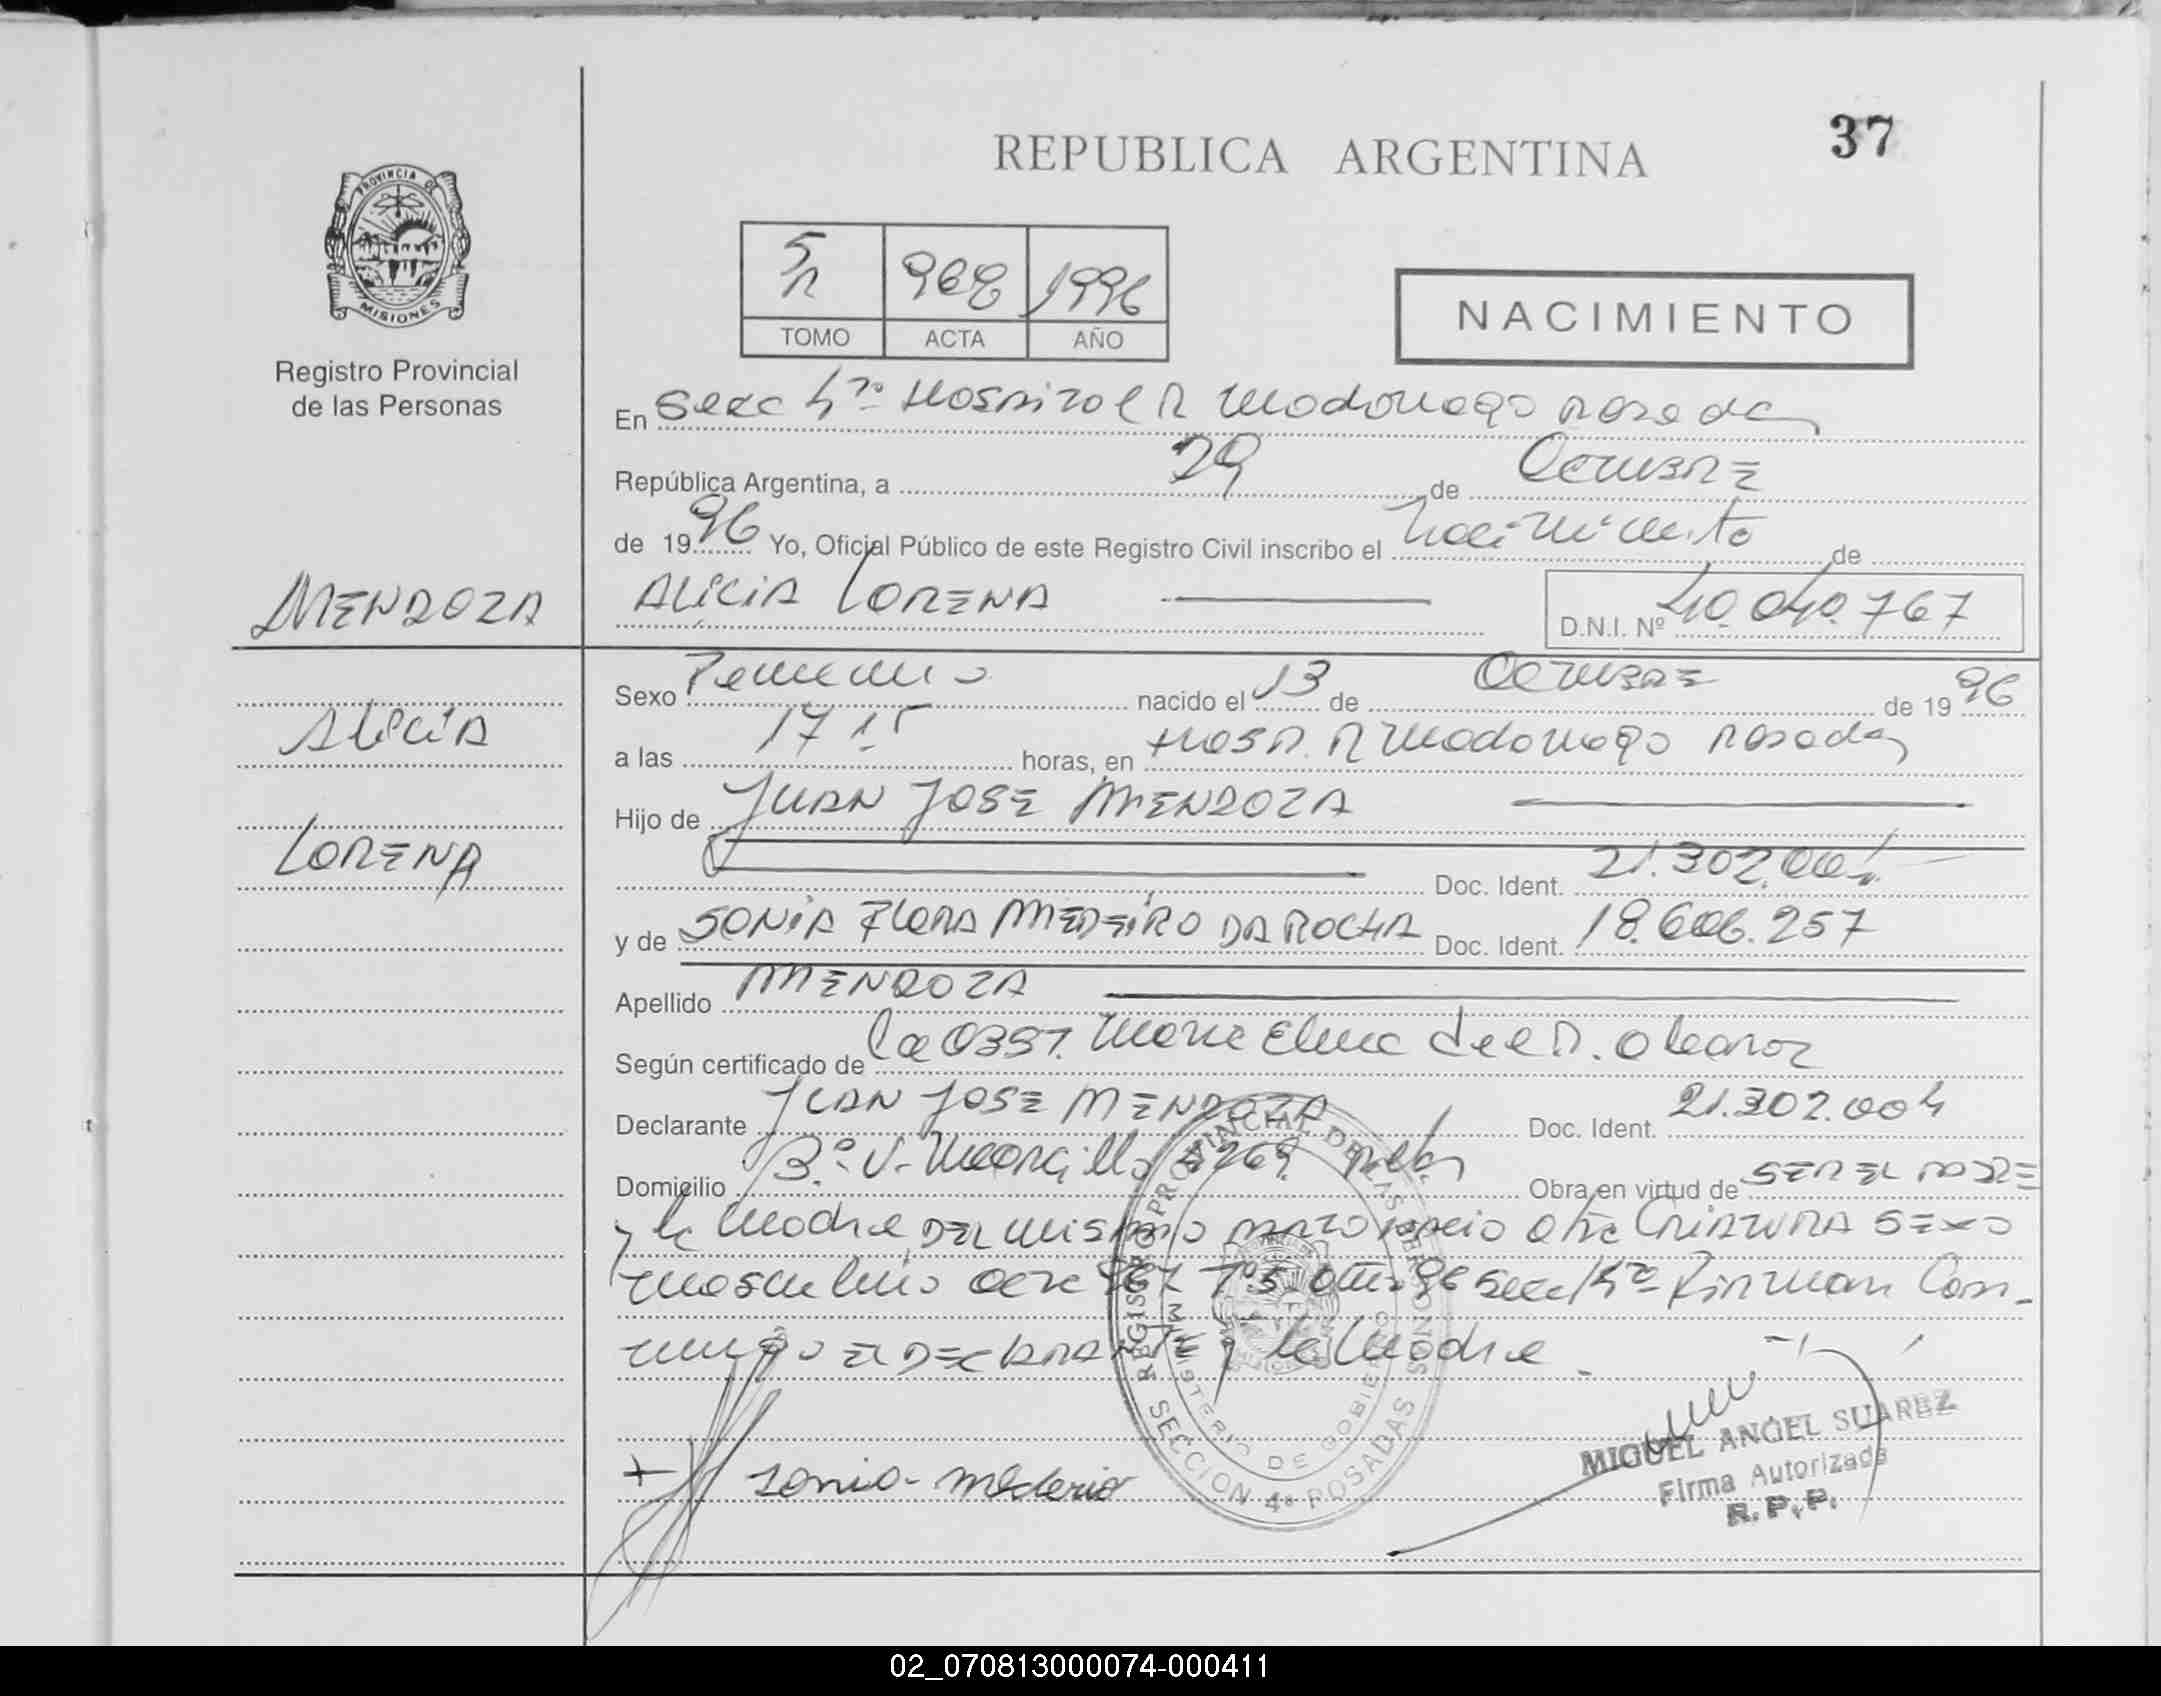 37
REPUBLICA ARGENTINA
PROVINCIA DE
MISIONES
Registro Provincial
de las Personas
5 968 1996
TOMO ACTA AÑO
NACIMIENTO
En Secc 4ta Hospital R Madariaga Posadas
República Argentina, a 29 de Octubre
de 1996 Yo, Oficial Público de este Registro Civil inscribo el Nacimiento de
MENDOZA
ALICIA LORENA D.N.I. Nº 40.040.767
Sexo Femenino nacido el 13 de Octubre de 1996
ALICIA
a las 17 15 horas, en Hosp. R Madariaga Posadas
Hijo de JUAN JOSE MENDOZA
LORENA
Doc. Ident. 21.302.004
y de SONIA FLORA MEDEIRO DA ROCHA Doc. Ident. 18.606.257
Apellido MENDOZA
Según certificado de la Obst. Maria Elena del P.
Declarante JUAN JOSE MENDOZA Doc. Ident. 21.302.004
Domicilio Bº V. 4269 Obra en virtud de SER EL PADRE
y la Madre DEL mismo parto nacio otra CRIATURA SEXO
masculino acta 967 Tº 5 año 96 Secc 4ta Firman Con-
migo EL DECLARANTE y la Madre.
REGISTRO PROVINCIAL DE LAS PERSONAS
MINISTERIO DE GOBIERNO
SECCION 4ª POSADAS
Sonia - Mederio
MIGUEL ANGEL SUAREZ
Firma Autorizada
R.P.P.
02_070813000074-000411